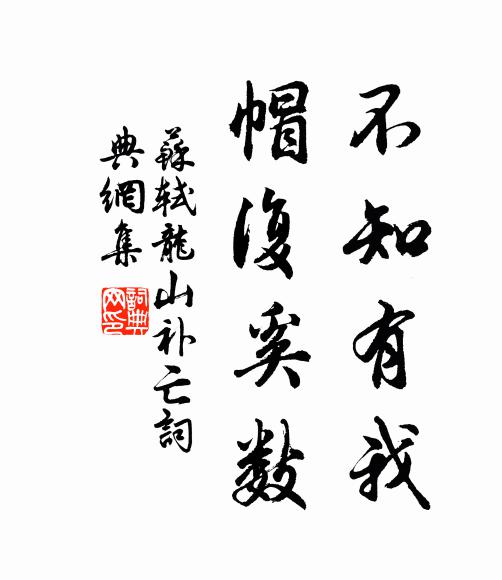 不知有我
帽復奚數
蘇軾龍山补亡詞
典網集
詞典網印